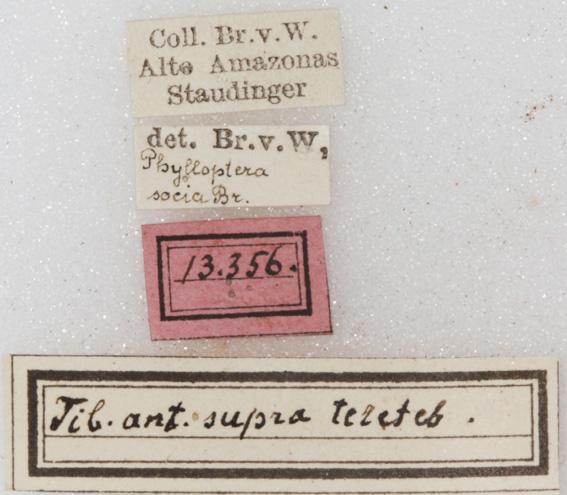 Coll. Br.v.W.
Alto Amazonas
Staudinger
det. Br.v.W,
Phylloptera
socia Br.
13.356.
Tib. ant. supra teretes.